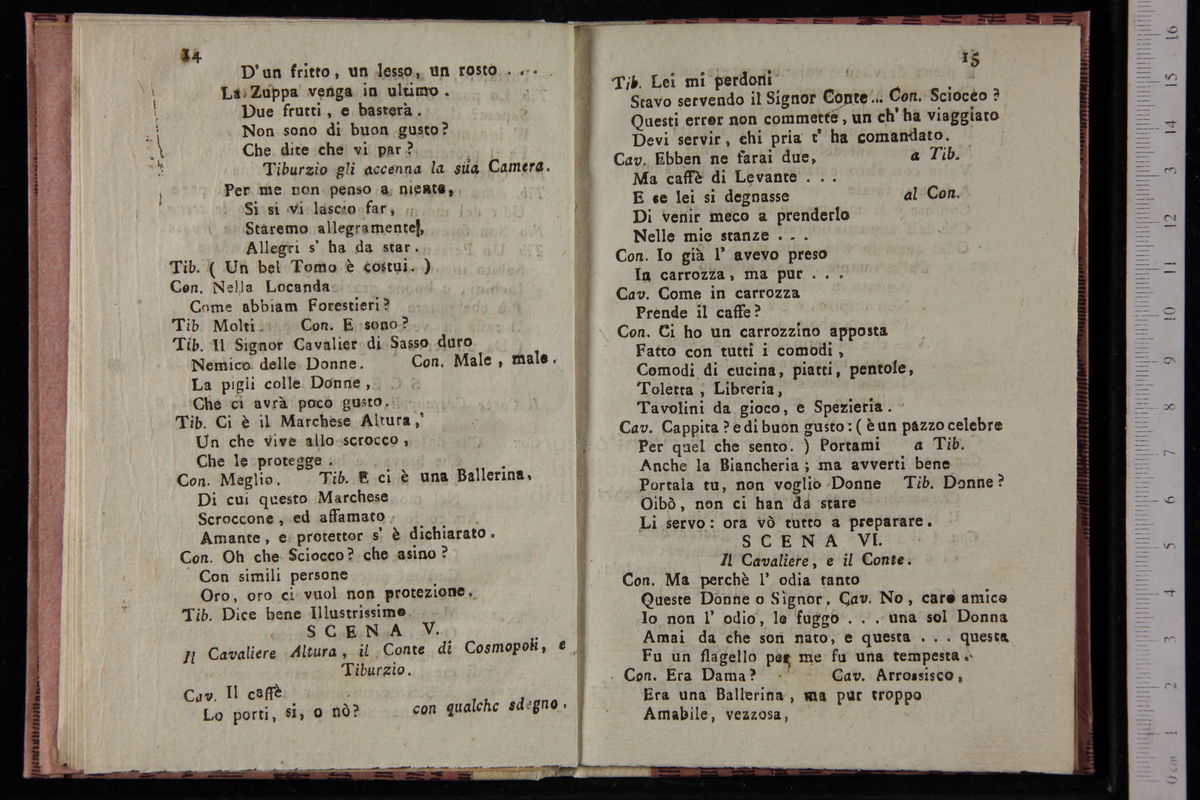 14
D'un fritto, un lesso, un rosto . . .
La Zuppa venga in ultimo.
Due frutti, e basterà.
Non sono di buon gusto?
Che dite che vi par?
Tiburzio gli accenna la sua Camera.
Per me non penso a niente,
Si si vi lascio far,
Staremo allegramente,
Allegri s' ha da star.
Tib. ( Un bel Tomo è costui. )
Con. Nella Locanda
Come abbiam Forestieri?
Tib Molti. Con. E sono?
Tib. Il Signor Cavalier di Sasso duro
Nemico delle Donne. Con. Male, male.
La pigli colle Donne,
Che ci avrà poco gusto.
Tib. Ci è il Marchese Altura,
Un che vive allo scrocco,
Che le protegge.
Con. Meglio. Tib. E ci è una Ballerina,
Di cui questo Marchese
Scroccone, ed affamato
Amante, e protettor s' è dichiarato.
Con. Oh che Sciocco? che asino?
Con simili persone
Oro, oro ci vuol non protezione.
Tib. Dice bene Illustrissimo
SCENA V.
Il Cavaliere Altura, il Conte di Cosmopoli, e
Tiburzio.
Cav. Il caffè
Lo porti, si, o nò? con qualche sdegno.
15
Tib. Lei mi perdoni
Stavo servendo il Signor Conte... Con. Sciocco?
Questi error non commette, un ch' ha viaggiato
Devi servir, chi pria t' ha comandato.
Cav. Ebben ne farai due, a Tib.
Ma caffè di Levante . . .
E se lei si degnasse al Con.
Di venir meco a prenderlo
Nelle mie stanze . . .
Con. Io già l' avevo preso
In carrozza, ma pur . . .
Cav. Come in carrozza
Prende il caffe?
Con. Ci ho un carrozzino apposta
Fatto con tutti i comodi,
Comodi di cucina, piatti, pentole,
Toletta, Libreria,
Tavolini da gioco, e Spezieria.
Cav. Cappita? e di buon gusto: ( è un pazzo celebre
Per quel che sento. ) Portami a Tib.
Anche la Biancheria; ma avverti bene
Portala tu, non voglio Donne Tib. Donne?
Oibò, non ci han da stare
Li servo: ora vò tutto a preparare.
SCENA VI.
Il Cavaliere, e il Conte.
Con. Ma perchè l' odia tanto
Queste Donne o Signor. Cav. No, caro amico
Io non l' odio, le fuggo . . . una sol Donna
Amai da che son nato, e questa . . . questa
Fu un flagello per me fu una tempesta.
Con. Era Dama? Cav. Arrossisco,
Era una Ballerina, ma pur troppo
Amabile, vezzosa,